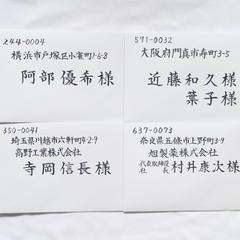 244-0004
横浜市戸塚区小雀町1-6-8
阿部優希様
571-0032
大阪府門真市寿町3-5
近藤和久様
葉子様
350-0041
埼玉県川越市六軒町9-2-9
高野工業株式会社
寺岡信長様
637-0073
奈良県五條市上野町3-9
旭製薬株式会社
代表取締役社長 村井康次様